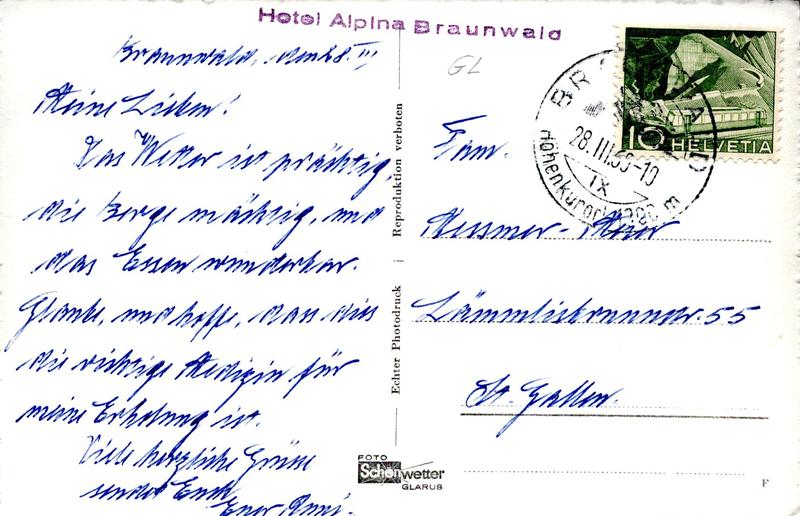 Hotel Alpina Braunwald
Braunwald, den 28. III
GL
Meine Lieben!
Das Wetter ist prächtig,
die Berge mächtig, und
das Essen wunderbar.
Glaube, und hoffe, dass dies
die richtige Medizin für
meine Erholung ist.
Viele herzliche Grüsse
sendet Euch
Euer
Reproduktion verboten
Echter Photodruck
FOTO
Schönwetter
GLARUS
10 HELVETIA
BRAUNWALD
28. III. 53-10
IX
Höhenkurort m
Fam.
Messmer-
Lämmlisbrunnstr. 55
St. Gallen.
F